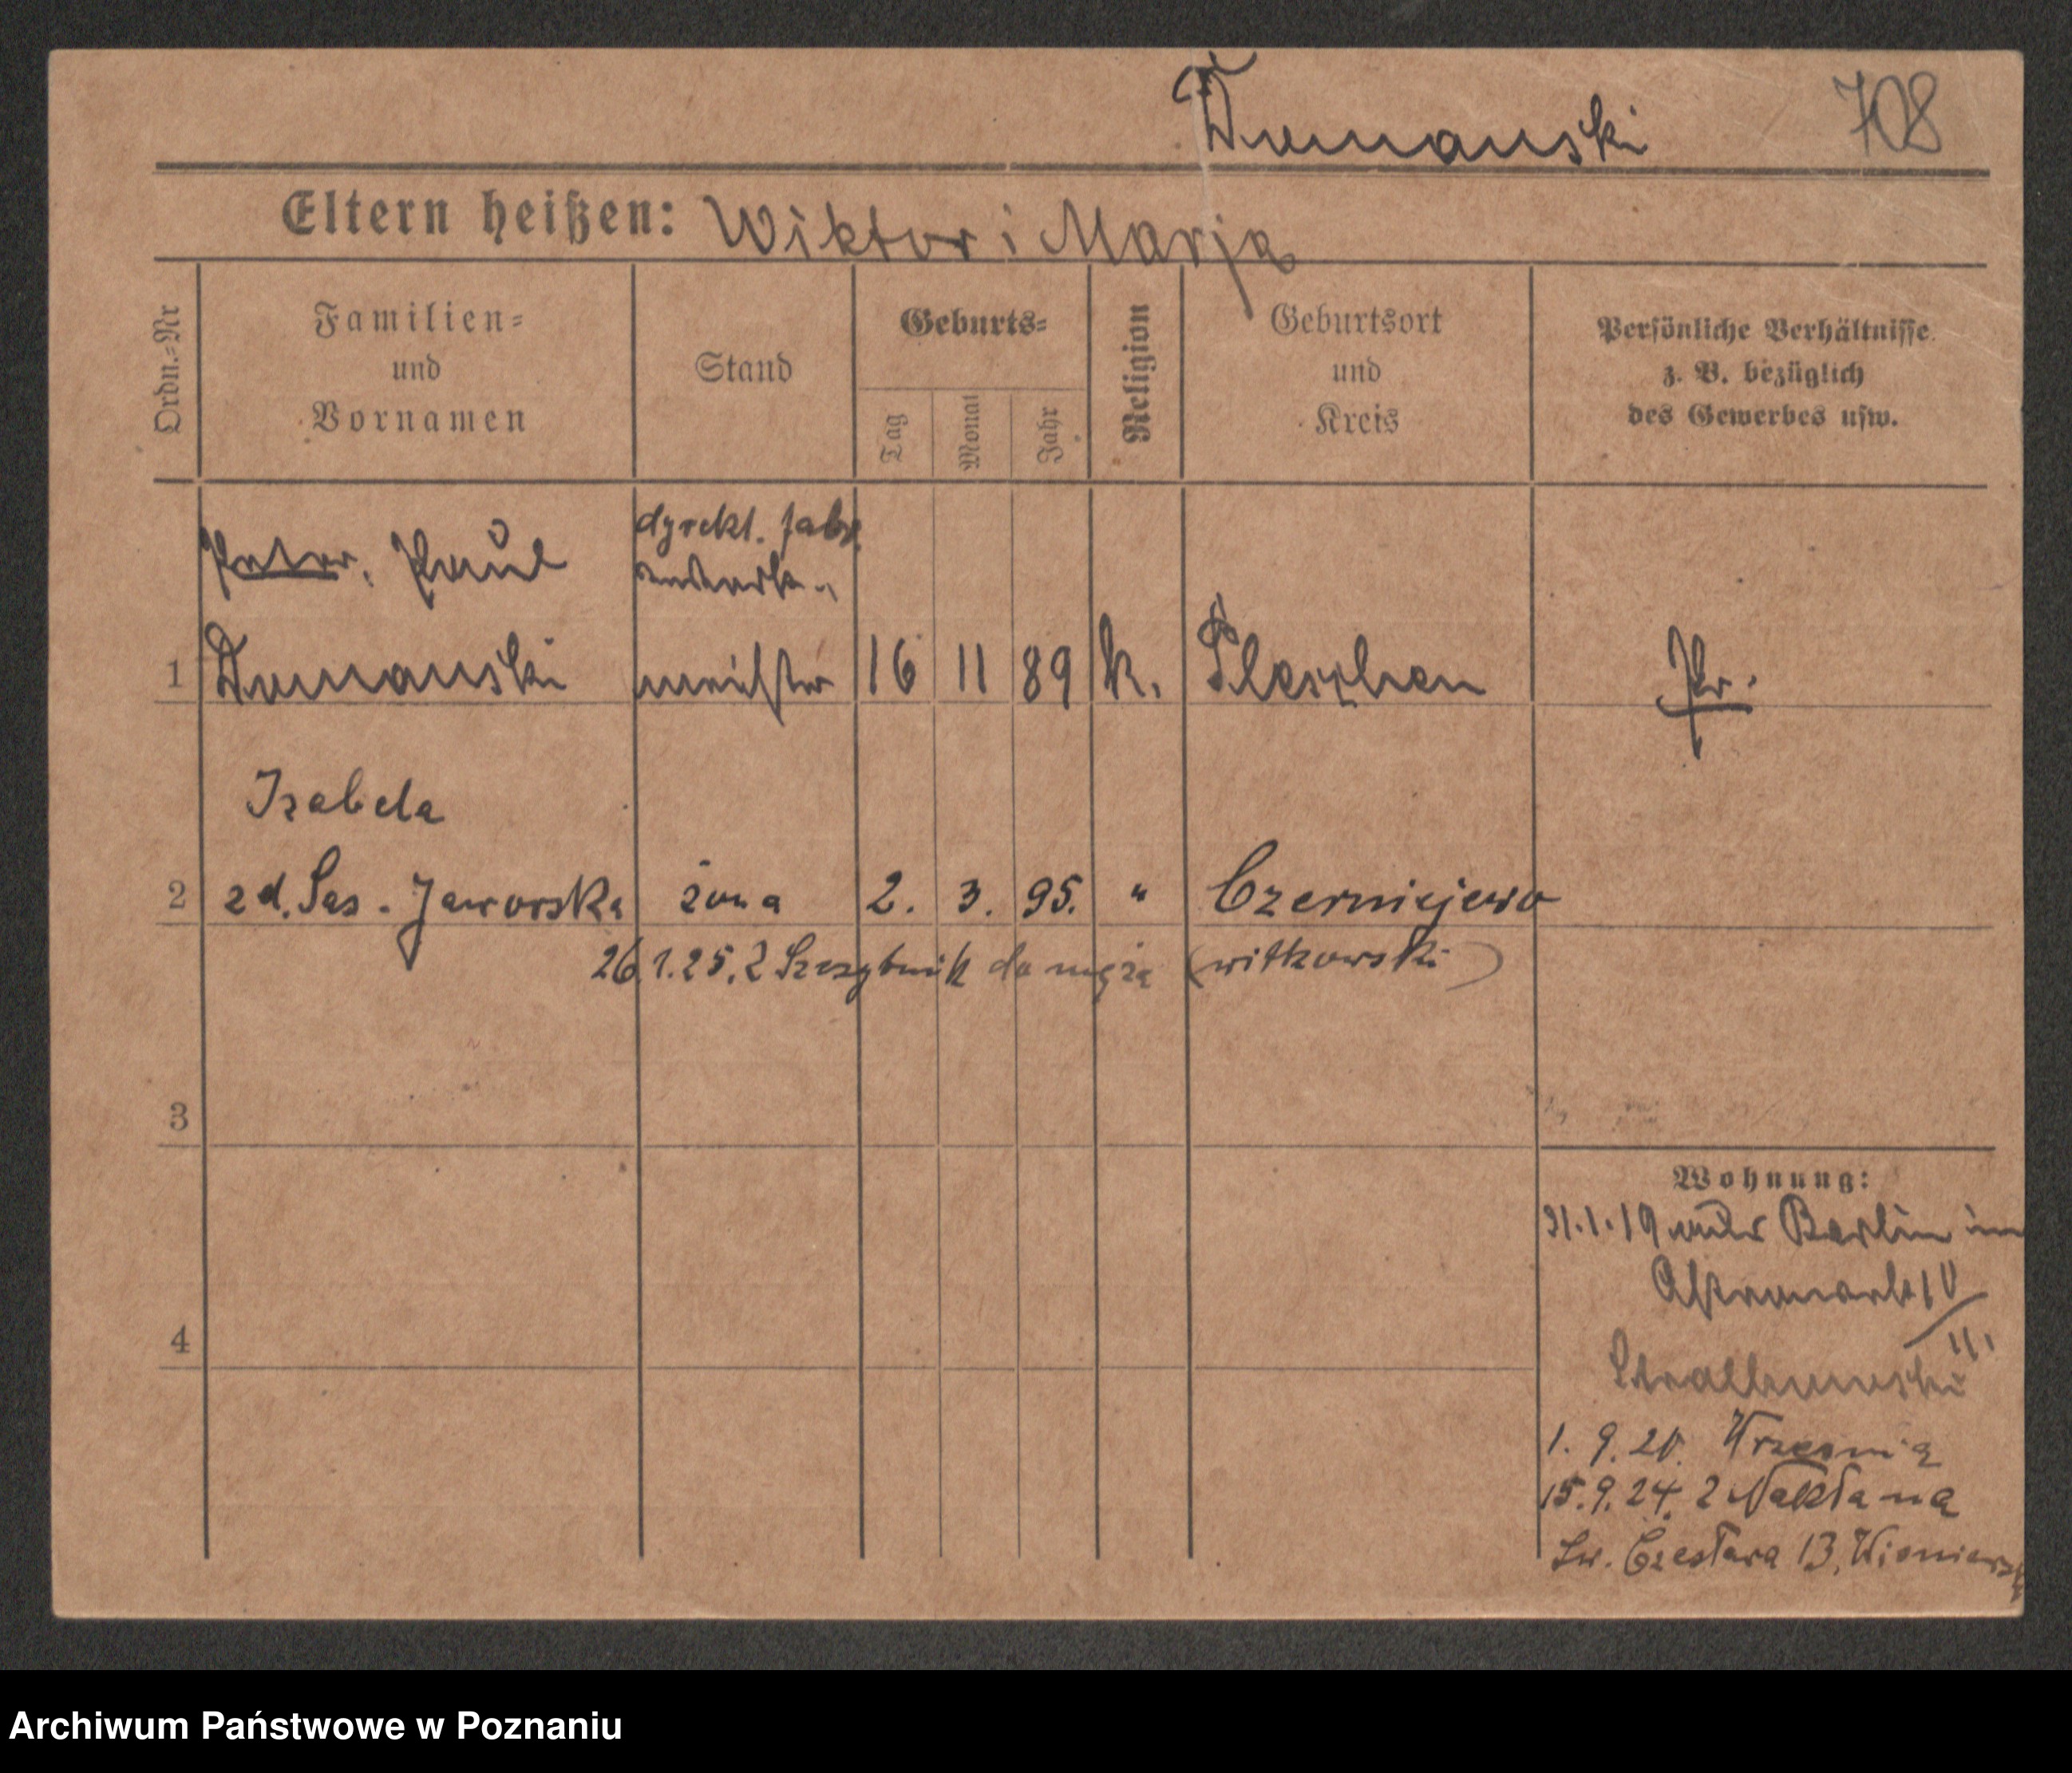 Domanski 708
Eltern heißen: Wiktor i Marja
Ordn.=Nr
Familien=
und
Vornamen
Stand
Geburts=
Tag
Monat
Jahr
Religion
Geburtsort
und
Kreis
Persönliche Verhältnisse
z. B. bezüglich
des Gewerbes usw.
dyrekt. fabr.
Peter, Paul
1 Domanski meister 16 11 89 k. Pleschen Pr.
Izabela
2 zd. Sas-Jaworska żona 2. 3. 95. " Czerniejewo
26.1.25. z Szczytnik do męża (witkowski)
3
Wohnung:
31.1.19 Berlin im
4
1. 9. 20. Września
15. 9. 24. z Nakła na
Św. Czesława 13,
Archiwum Państwowe w Poznaniu